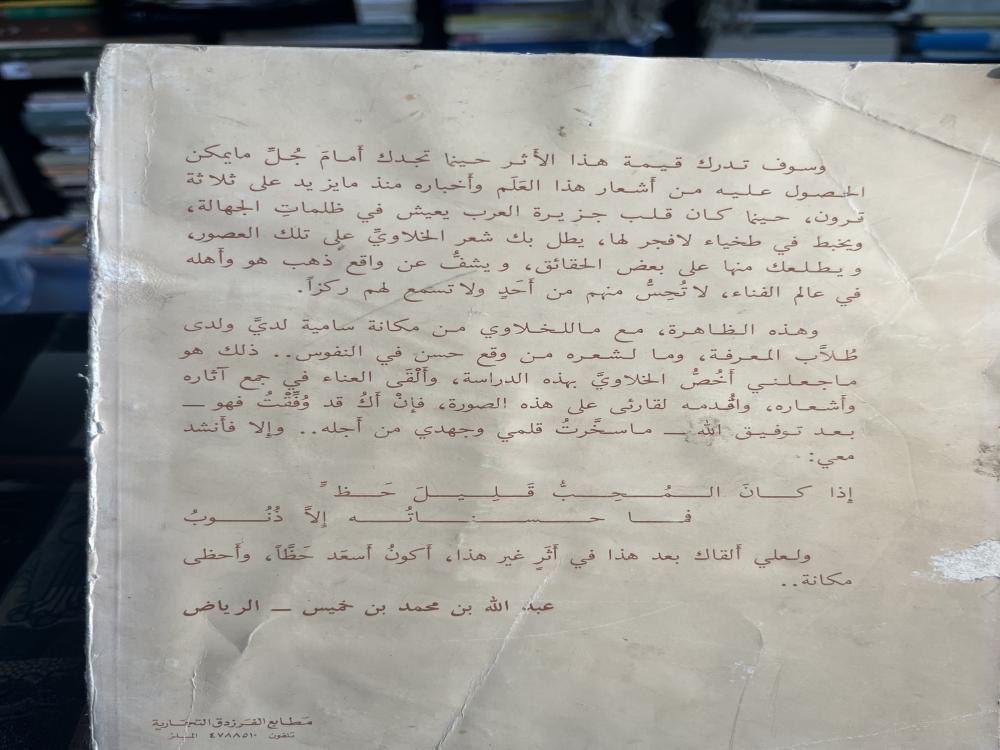 وسوف تدرك قيمة هذا الأثر حينما تجدك أمامَ جُلِّ مايمكن
الحصول عليه من أشعار هذا العَلَم وأخباره منذ مايزيد على ثلاثة
قرون، حينما كان قلب جزيرة العرب يعيش في ظلماتِ الجهالة،
ويخبط في طخياء لافجر لها، يطل بك شعر الخلاويِّ على تلك العصور،
ويطلعك منها على بعض الحقائق، ويشفُّ عن واقع ذهب هو وأهله
في عالم الفناء، لاتُحِسُّ منهم من أَحَدٍ ولاتسمع لهم ركزاً.
وهذه الظاهرة، مع ماللخلاوي من مكانة سامية لديَّ ولدى
طُلاَّب المعرفة، وما لشعره من وقع حسن في النفوس.. ذلك هو
ماجعلني أَخُصُّ الخلاويَّ بهذه الدراسة، وأَلْقَى العناء في جمع آثاره
وأشعاره، واقُدمه لقارئى على هذه الصورة، فإنْ أَكُ قد وُفِّقْتُ فهو —
بعد توفيق الله — ماسخَّرتُ قلمي وجهدي من أجله.. وإلا فأنشد
معي:
إذا كـانَ الـمُـحِـبُّ قَـلِـيـلَ حَـظٍّ
فما حـسـنـاتُـه إلاَّ ذُنُـوبُ
ولعلي ألقاك بعد هذا في أَثَرٍ غير هذا، أكونُ أسعَد حَظَّاً، وأحظى
مكانة..
عبد الله بن محمد بن خميس — الرياض
مطابع الفرزدق التجارية
تلفون ٤٧٨٨٥١٠ الملز